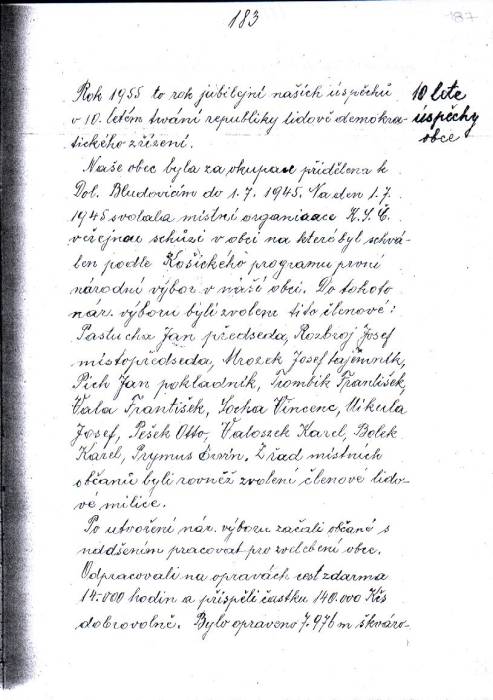 183
187
Rok 1955 to rok jubilejní našich úspěchů
v 10. letém trvání republiky lidově demokra-
tického zřízení.
10 leté
úspěchy
obce
Naše obec byla za okupace přidělena k
Dol. Bludovicím do 1.7. 1945. Na den 1.7.
1945 svolala místní organisace K.S.Č.
veřejnou schůzi v obci na které byl schvá-
len podle Košického programu první
národní výbor v naší obci. Do tohoto
nár. výboru byli zvoleni tito členové:
Pastucha Jan předseda, Rozbroj Josef
místopředseda, Mrozek Josef tajemník,
Pich Jan pokladník, Trombik František,
Vala František, Socha Vincenc, Mikula
Josef, Pešek Otto, Valoszek Karel, Bolek
Karel, Prymus Ervín. Z řad místních
občanů byli rovněž zvoleni členové lido-
vé milice.
Po utvoření nár. výboru začali občané s
nadšením pracovat pro zvelebení obce.
Odpracovali na opravách cest zdarma
14.000 hodin a přispěli částku 140.000 Kčs
dobrovolně. Bylo opraveno 7.976 m škváro-